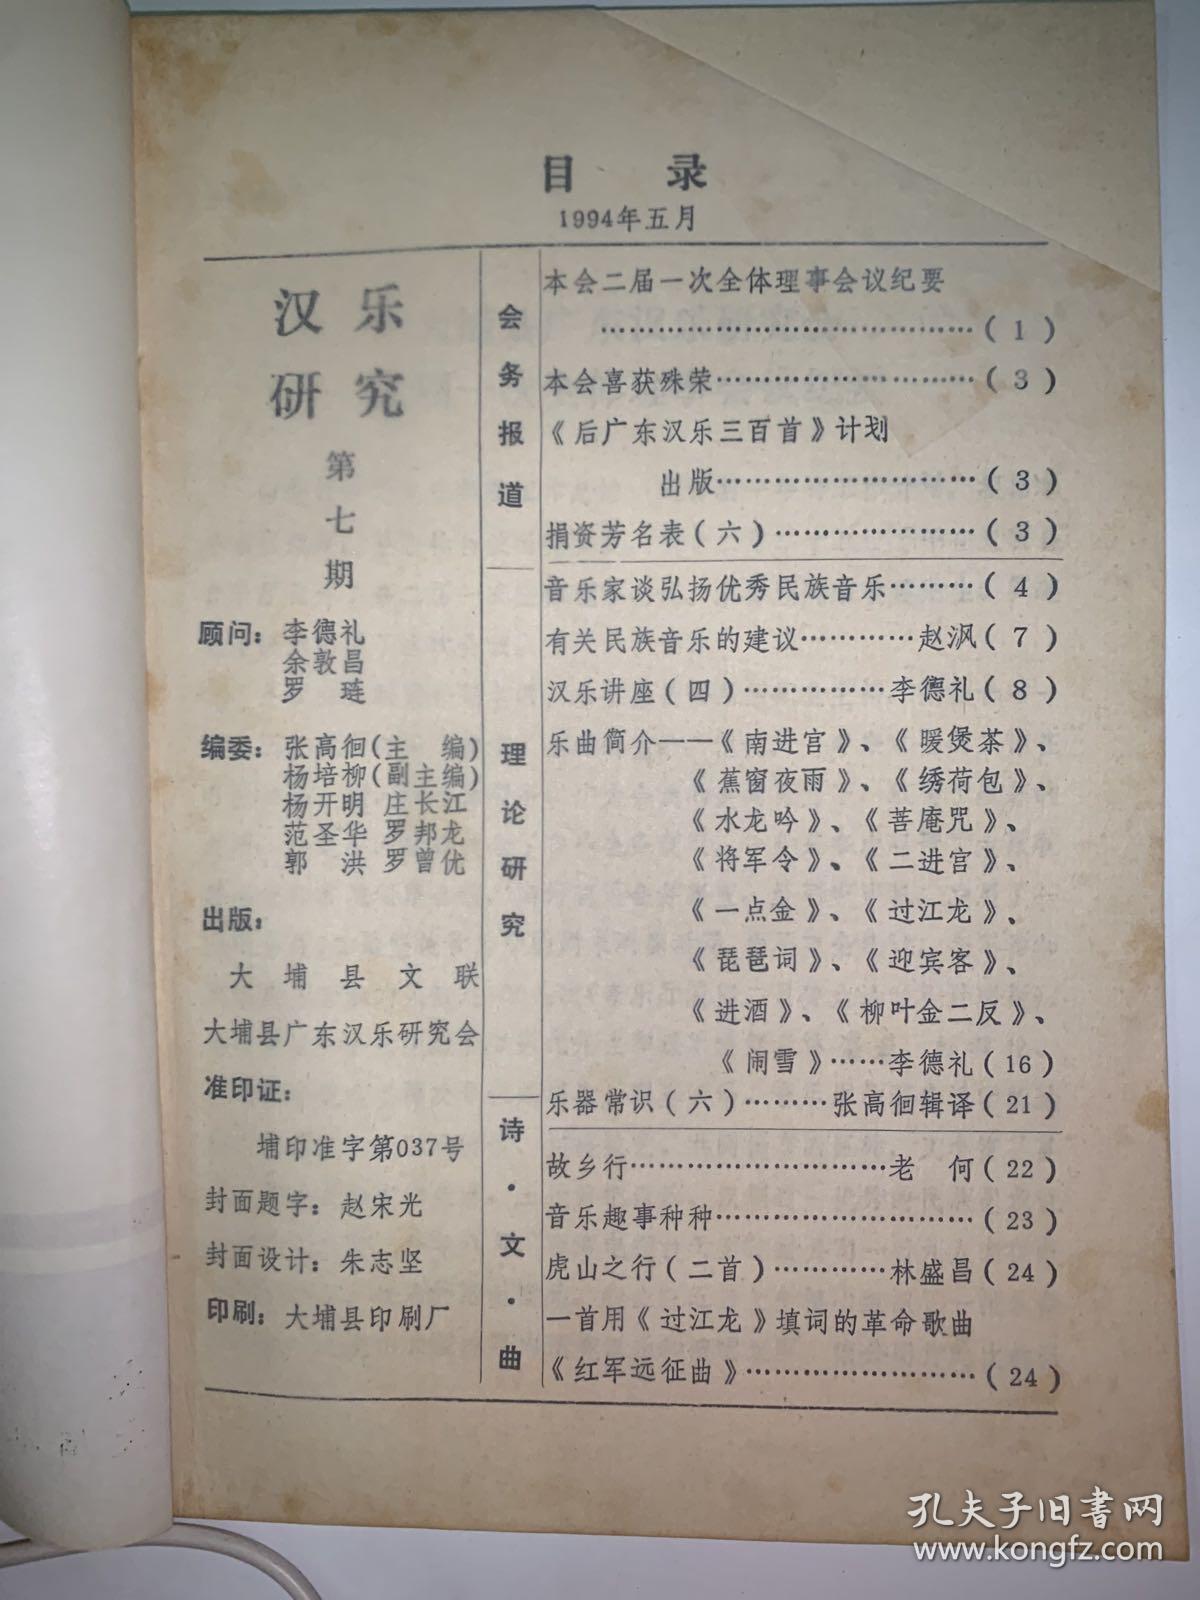 目 录
1994年五月
汉乐
研究
第七期
顾问：李德礼
余敦昌
罗 琏
编委：张高徊(主 编)
杨培柳(副主编)
杨开明 庄长江
范圣华 罗邦龙
郭 洪 罗曾优
出版：
大埔县文联
大埔县广东汉乐研究会
准印证：
埔印准字第037号
封面题字：赵宋光
封面设计：朱志坚
印刷：大埔县印刷厂
会务报道
本会二届一次全体理事会议纪要
……………………………………(1)
本会喜获殊荣…………………………(3)
《后广东汉乐三百首》计划
出版…………………………(3)
捐资芳名表(六)……………………(3)
理论研究
音乐家谈弘扬优秀民族音乐………(4)
有关民族音乐的建议…………赵沨(7)
汉乐讲座(四)……………李德礼(8)
乐曲简介——《南进宫》、《暖煲茶》、
《蕉窗夜雨》、《绣荷包》、
《水龙吟》、《菩庵咒》、
《将军令》、《二进宫》、
《一点金》、《过江龙》、
《琵琶词》、《迎宾客》、
《进酒》、《柳叶金二反》、
《闹雪》……李德礼(16)
乐器常识(六)………张高徊辑译(21)
诗·文·曲
故乡行…………………………老 何(22)
音乐趣事种种…………………………(23)
虎山之行(二首)…………林盛昌(24)
一首用《过江龙》填词的革命歌曲
《红军远征曲》………………………(24)
孔夫子旧书网
www.kongfz.com